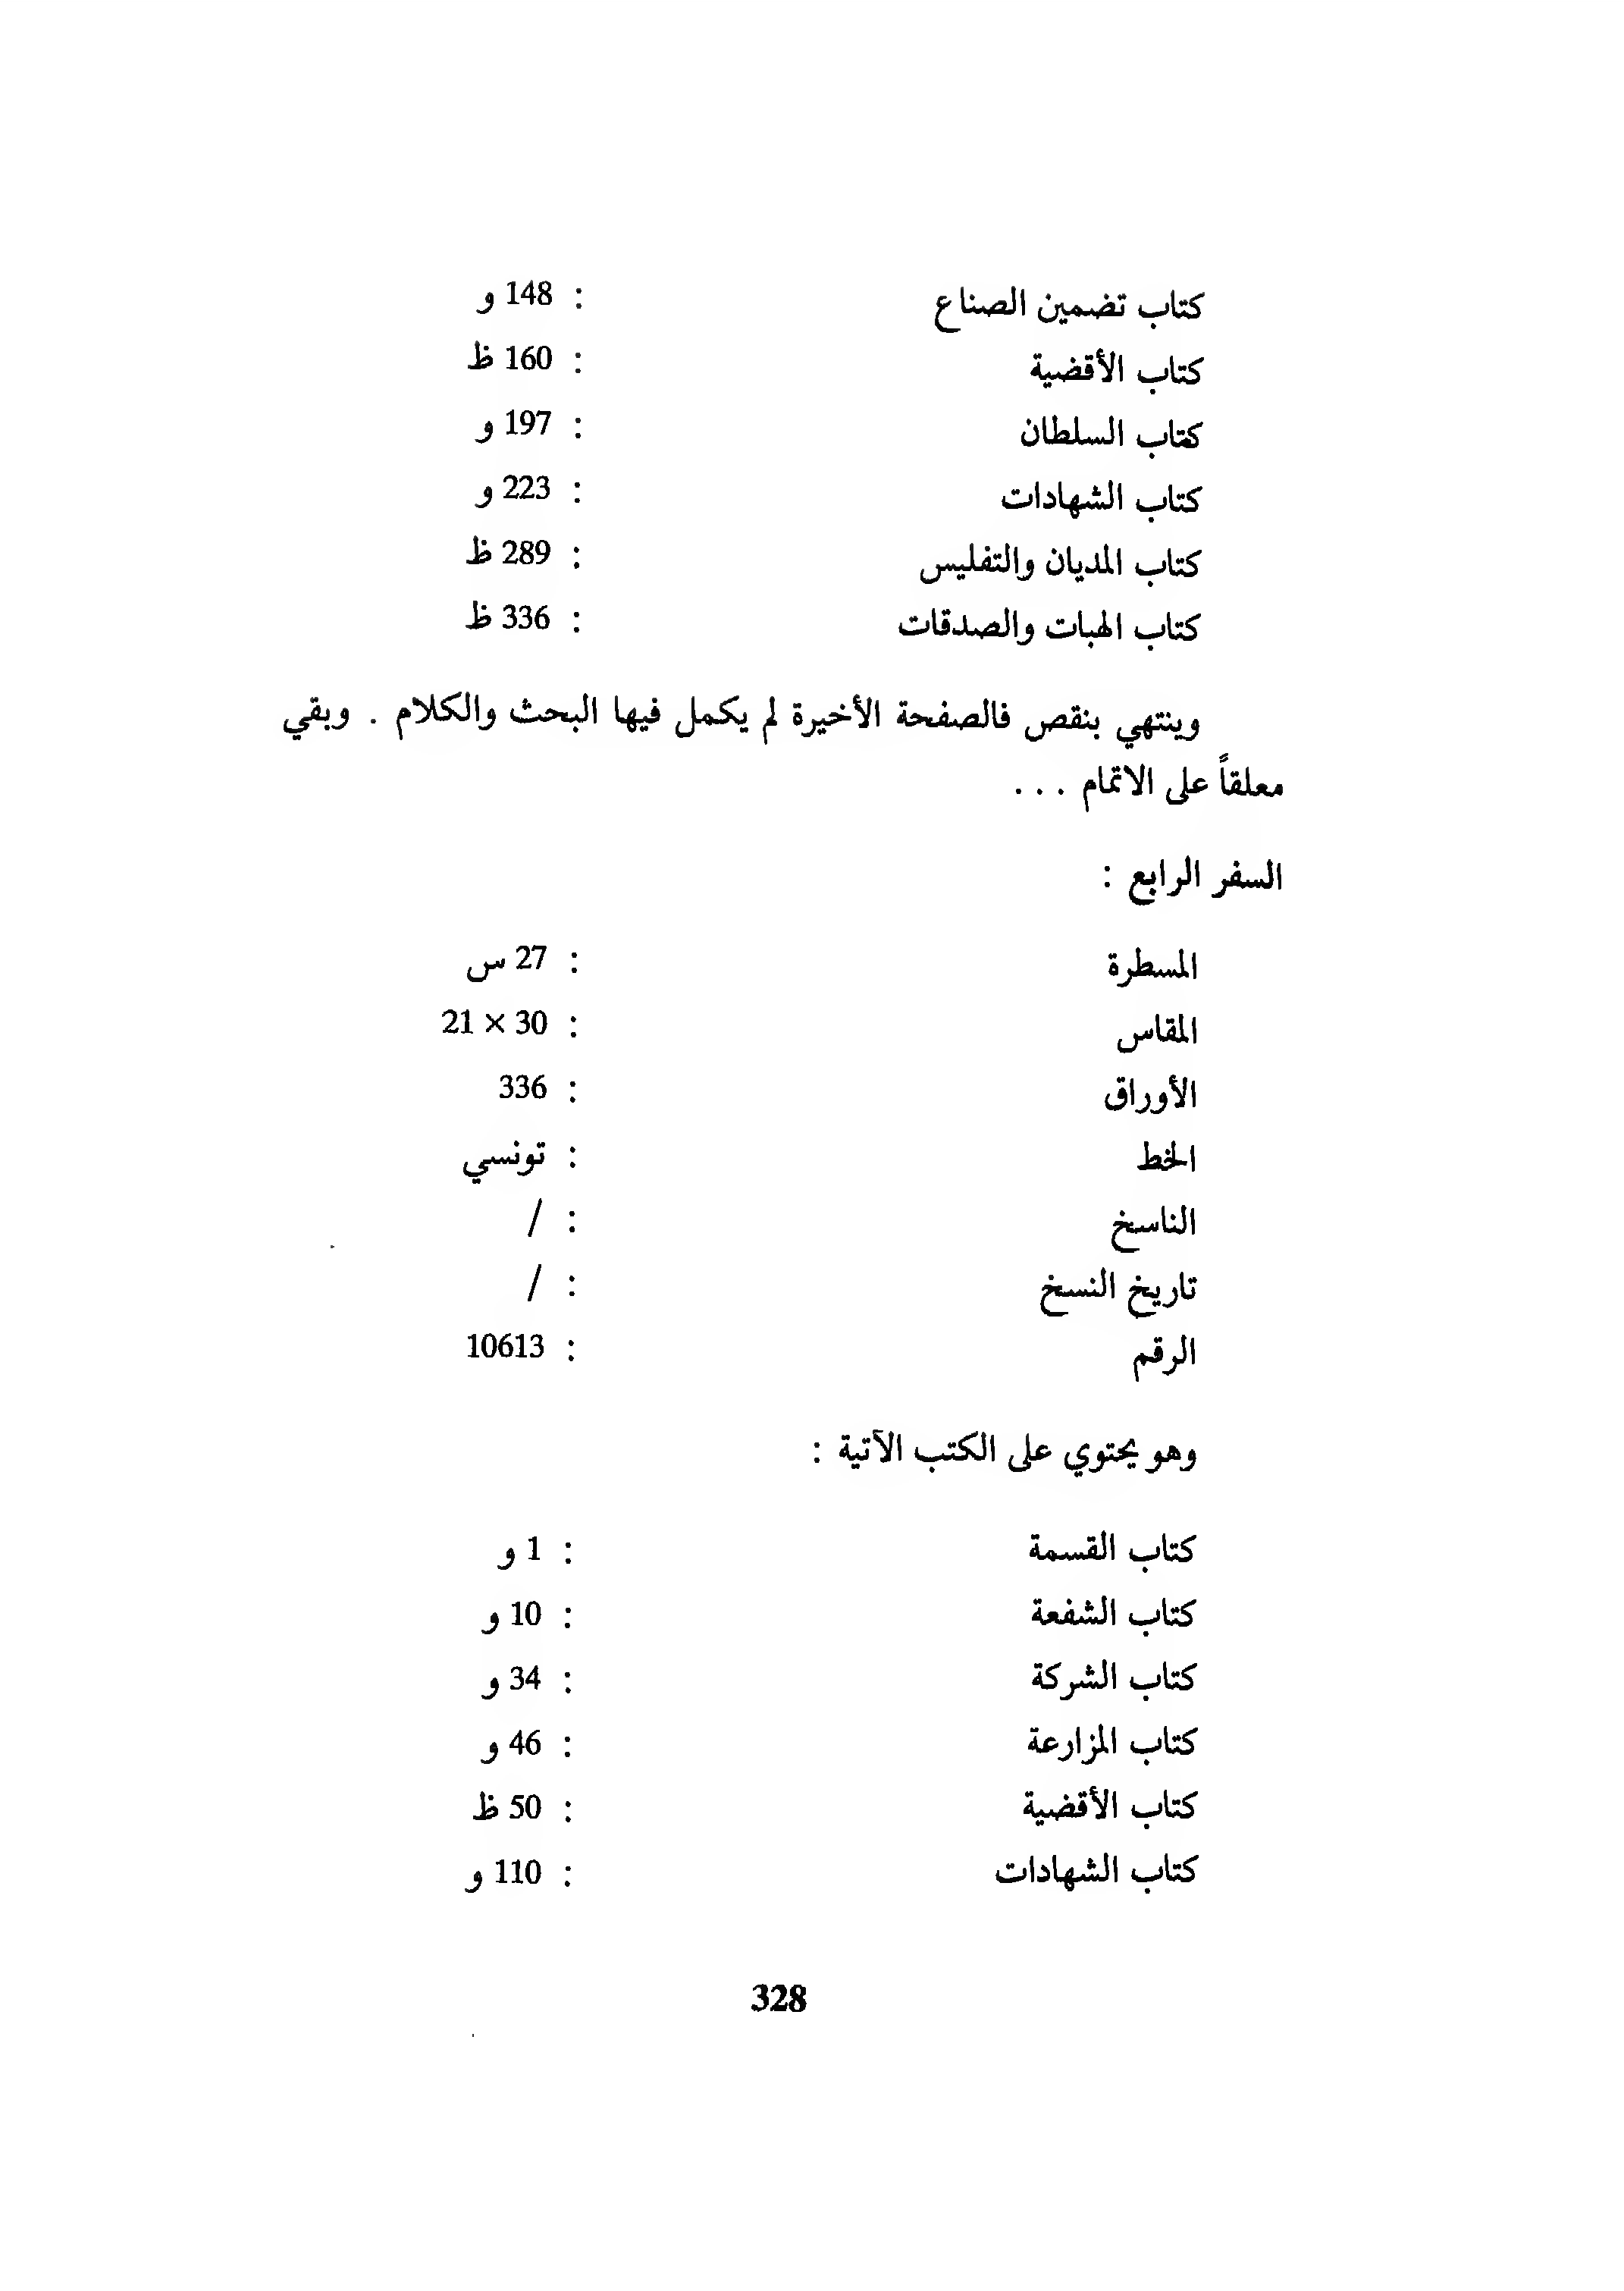 كتاب تضمين الصناع : 148 و
كتاب الأقضية : 160 ظ
كتاب السلطان : 197 و
كتاب الشهادات : 223 و
كتاب المديان والتفليس : 289 ظ
كتاب الهبات والصدقات : 336 ظ
وينتهي بنقص فالصفحة الأخيرة لم يكمل فيها البحث والكلام . وبقي
معلقاً على الاتمام . . .
السفر الرابع :
المسطرة : 27 س
المقاس : 30 × 21
الأوراق : 336
الخط : تونسي
الناسخ : /
تاريخ النسخ : /
الرقم : 10613
وهو يحتوي على الكتب الآتية :
كتاب القسمة : 1 و
كتاب الشفعة : 10 و
كتاب الشركة : 34 و
كتاب المزارعة : 46 و
كتاب الأقضية : 50 ظ
كتاب الشهادات : 110 و
328